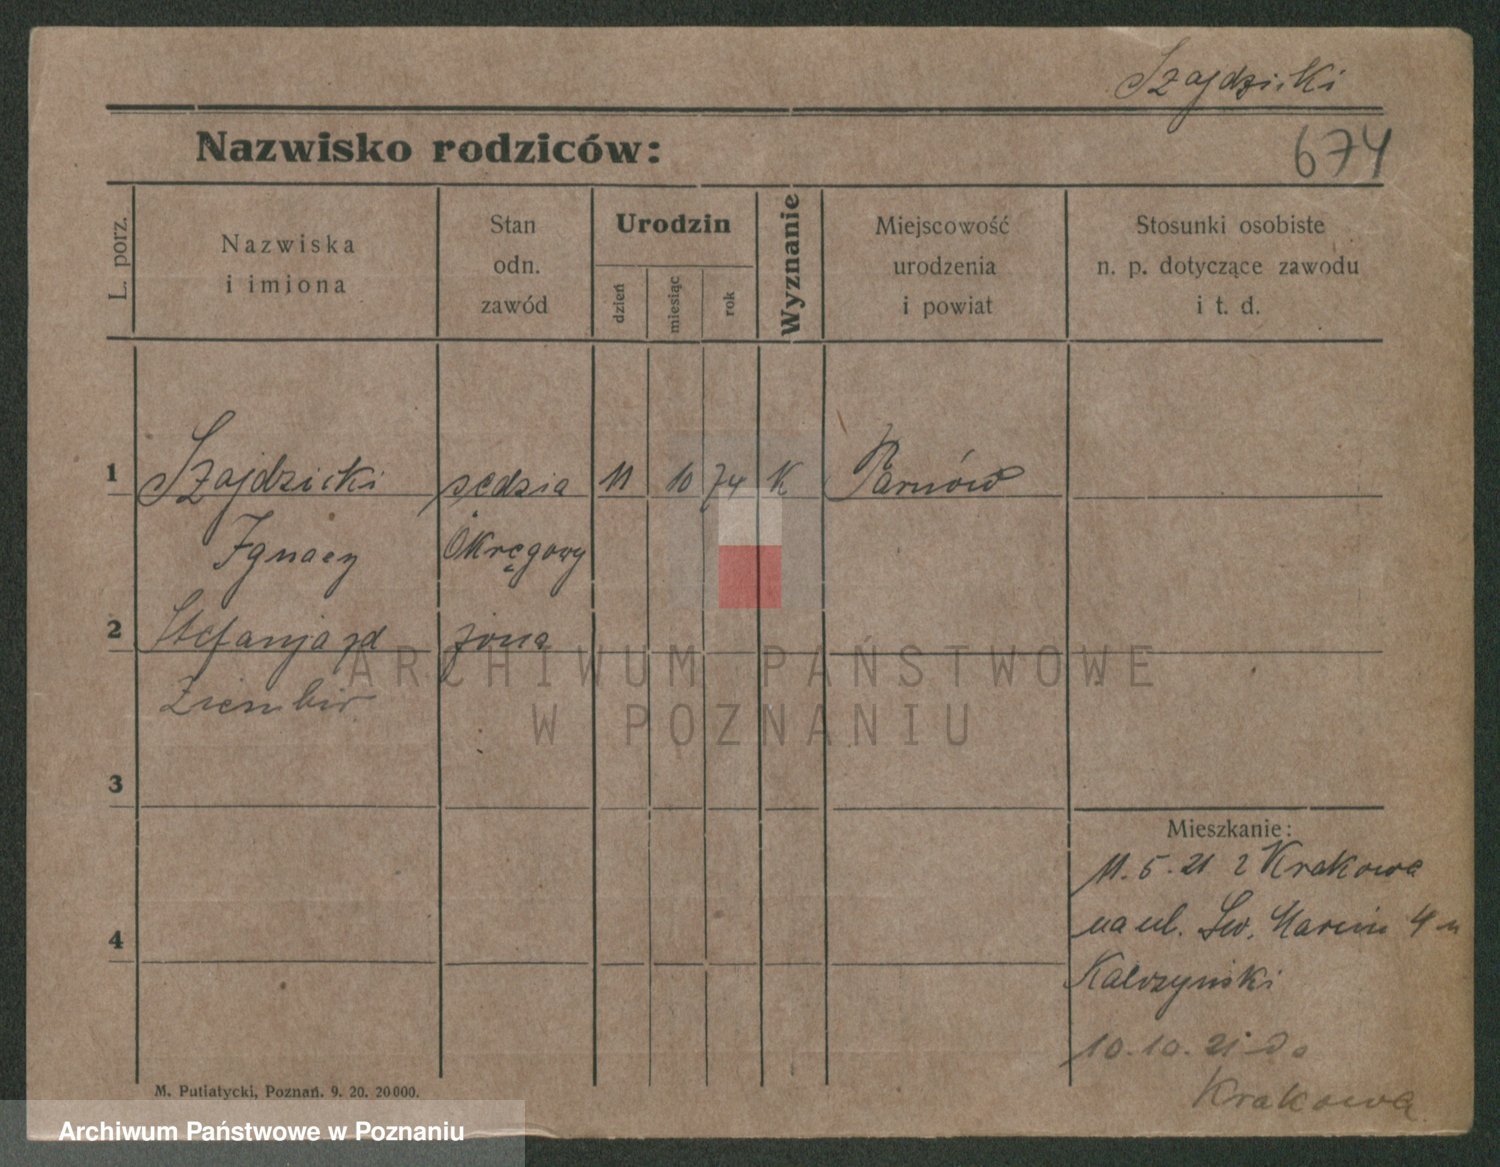 Szajdzicki
674
Nazwisko rodziców:
L. porz.
Nazwiska
i imiona
Stan
odn.
zawód
Urodzin
dzień
miesiąc
rok
Wyznanie
Miejscowość
urodzenia
i powiat
Stosunki osobiste
n. p. dotyczące zawodu
i t. d.
1 Szajdzicki sędzia 11 10 74 K Tarnów
Ignacy Okręgowy
2 Stefanja zd żona
3
4
Mieszkanie:
11.5.21 z Krakowa
na ul. Św. Marcin 4 u
10.10.21 do
Krakowa
M. Putiatycki, Poznań. 9. 20. 20000.
ARCHIWUM PAŃSTWOWE
W POZNANIU
Archiwum Państwowe w Poznaniu